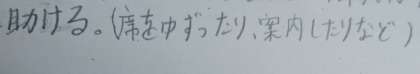 助ける。(席をゆずったり、案内したりなど)